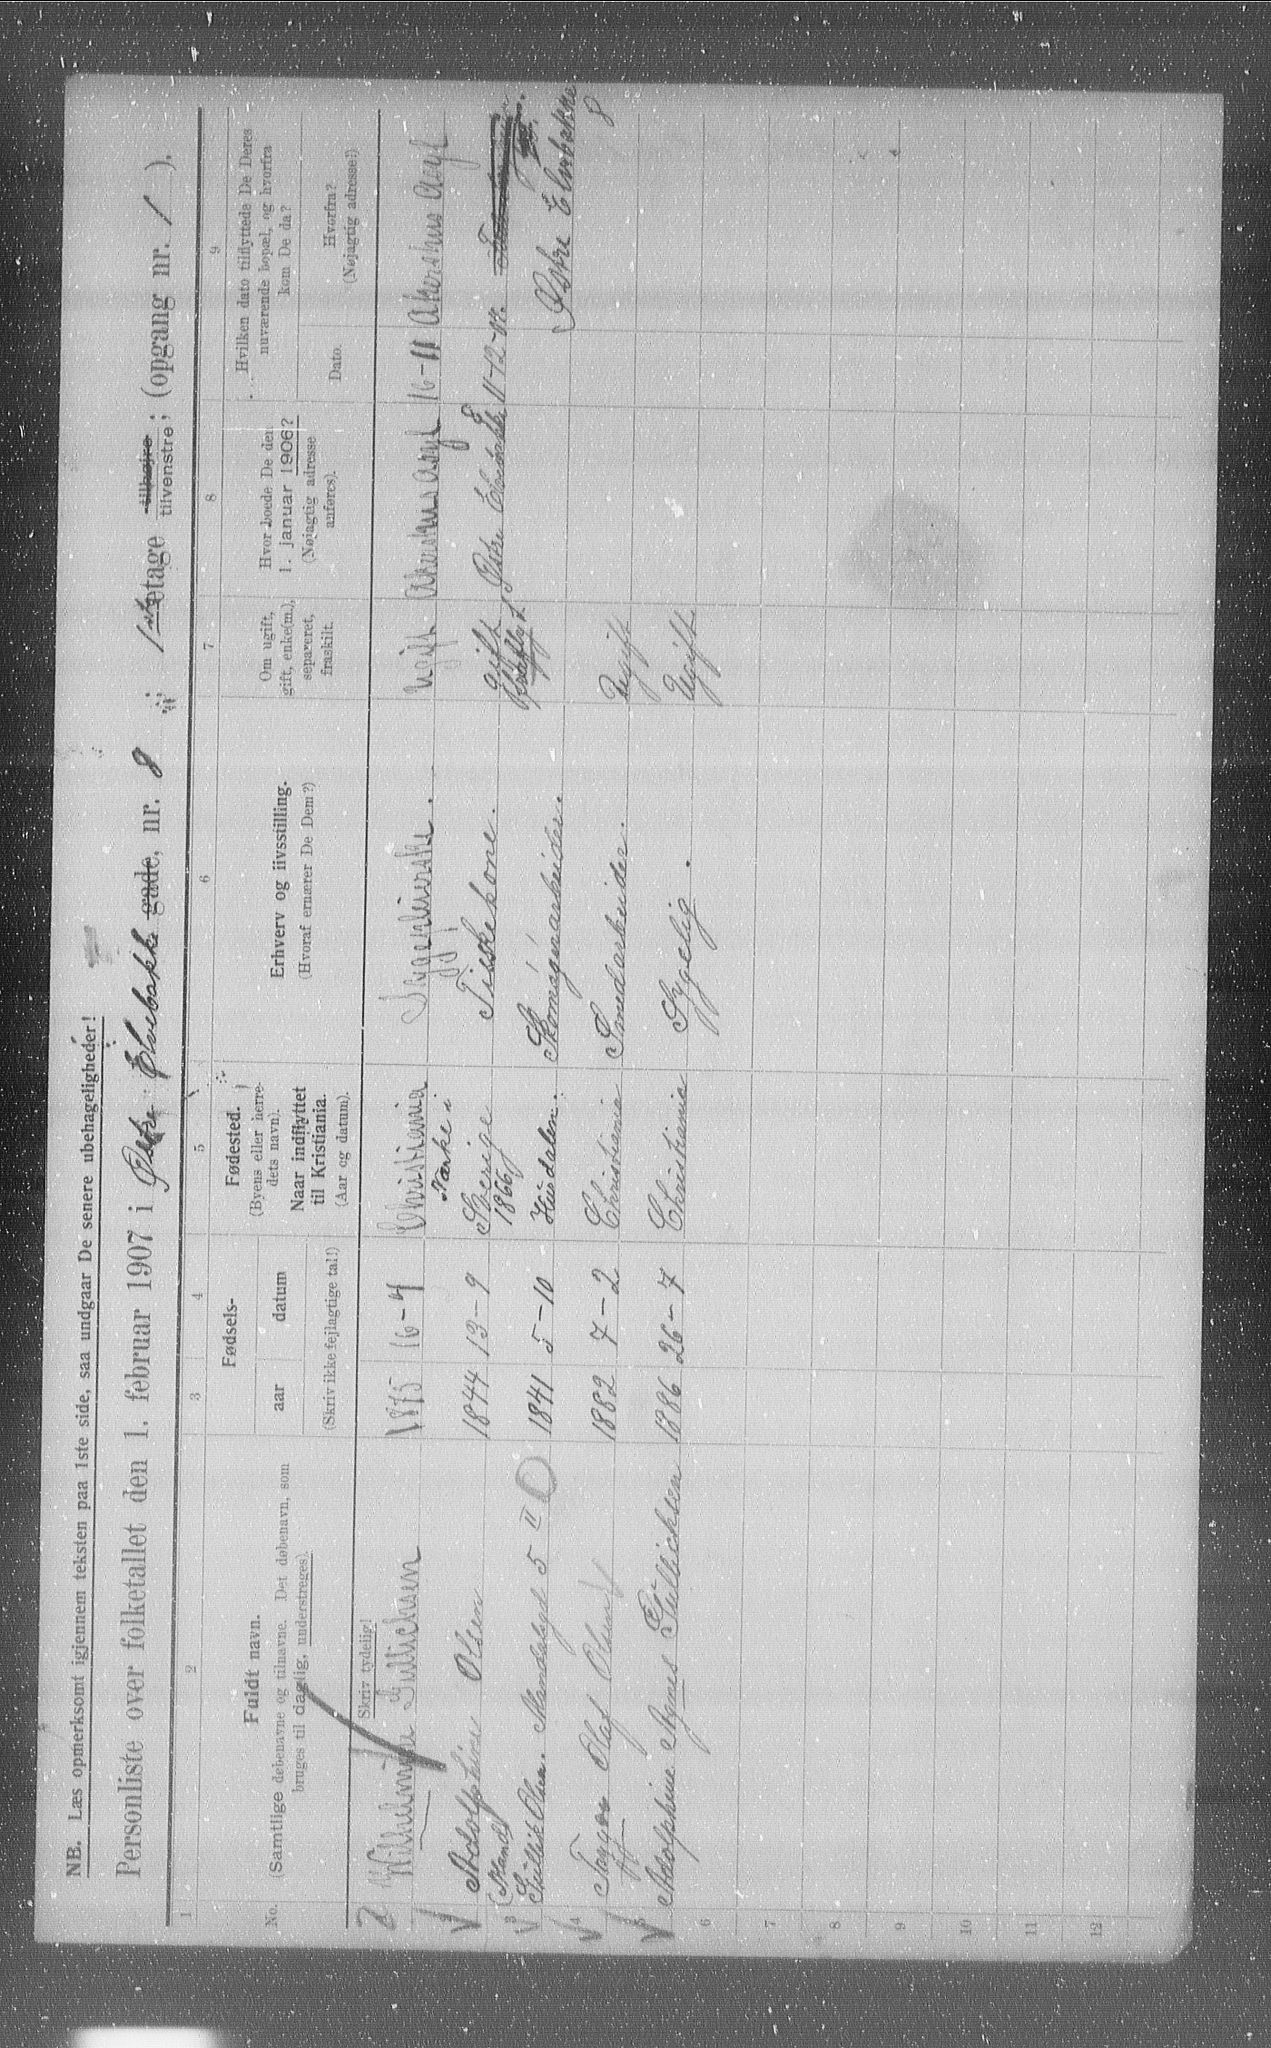 NB. Læs opmerksomt igjennem teksten paa 1ste side, saa undgaar De senere ubehageligheder!
Personliste over folketallet den 1. februar 1907 i Østre Elvebakke gade, nr. 8 ; 1ste etage tilhøjre tilvenstre; (opgang nr. 1 ).
1 2 3 4 5 6 7 8 9
No.
Fuldt navn.
(Samtlige døbenavne og tilnavne. Det døbenavn, som
bruges til daglig, understreges).
Skriv tydelig!
Fødsels-
aar datum
(Skriv ikke fejlagtige tal!)
Fødested.
(Byens eller herre-
dets navn).
Naar indflyttet
til Kristiania.
(Aar og datum).
Erhverv og livsstilling.
(Hvoraf ernærer De Dem?)
Om ugift,
gift, enke(m.),
separeret,
fraskilt.
Hvor boede De den
1. januar 1906?
(Nøjagtig adresse
anføres).
Hvilken dato tilflyttede De Deres
nuværende bopæl, og hvorfra
kom De da?
Dato.
Hvorfra?
(Nøjagtig adresse!)
Gullichsen 1875 16-4 Christiania Sygepleierske. Ugift Akershus asyl 16-11 Akershus Asyl
Adolphine Olsen 1844 13-9 Nærke i Sverige 1866 Fiskekone. gift Østre Elvebakke 8 11-12-
(Mand)
3 Gullik Olsen. Mandalsgd 5 II 1841 5-10 Hurdalen. Skomagerarbeider. Østre Elvebakke 8
4 Olaf Olsen 1882 7-2 Christiania Smedarbeider. Ugift
5 Adolphine Agnes Gullichsen 1886 26-7 Christiania Sygelig. Ugift
6
7
8
9
10
11
12